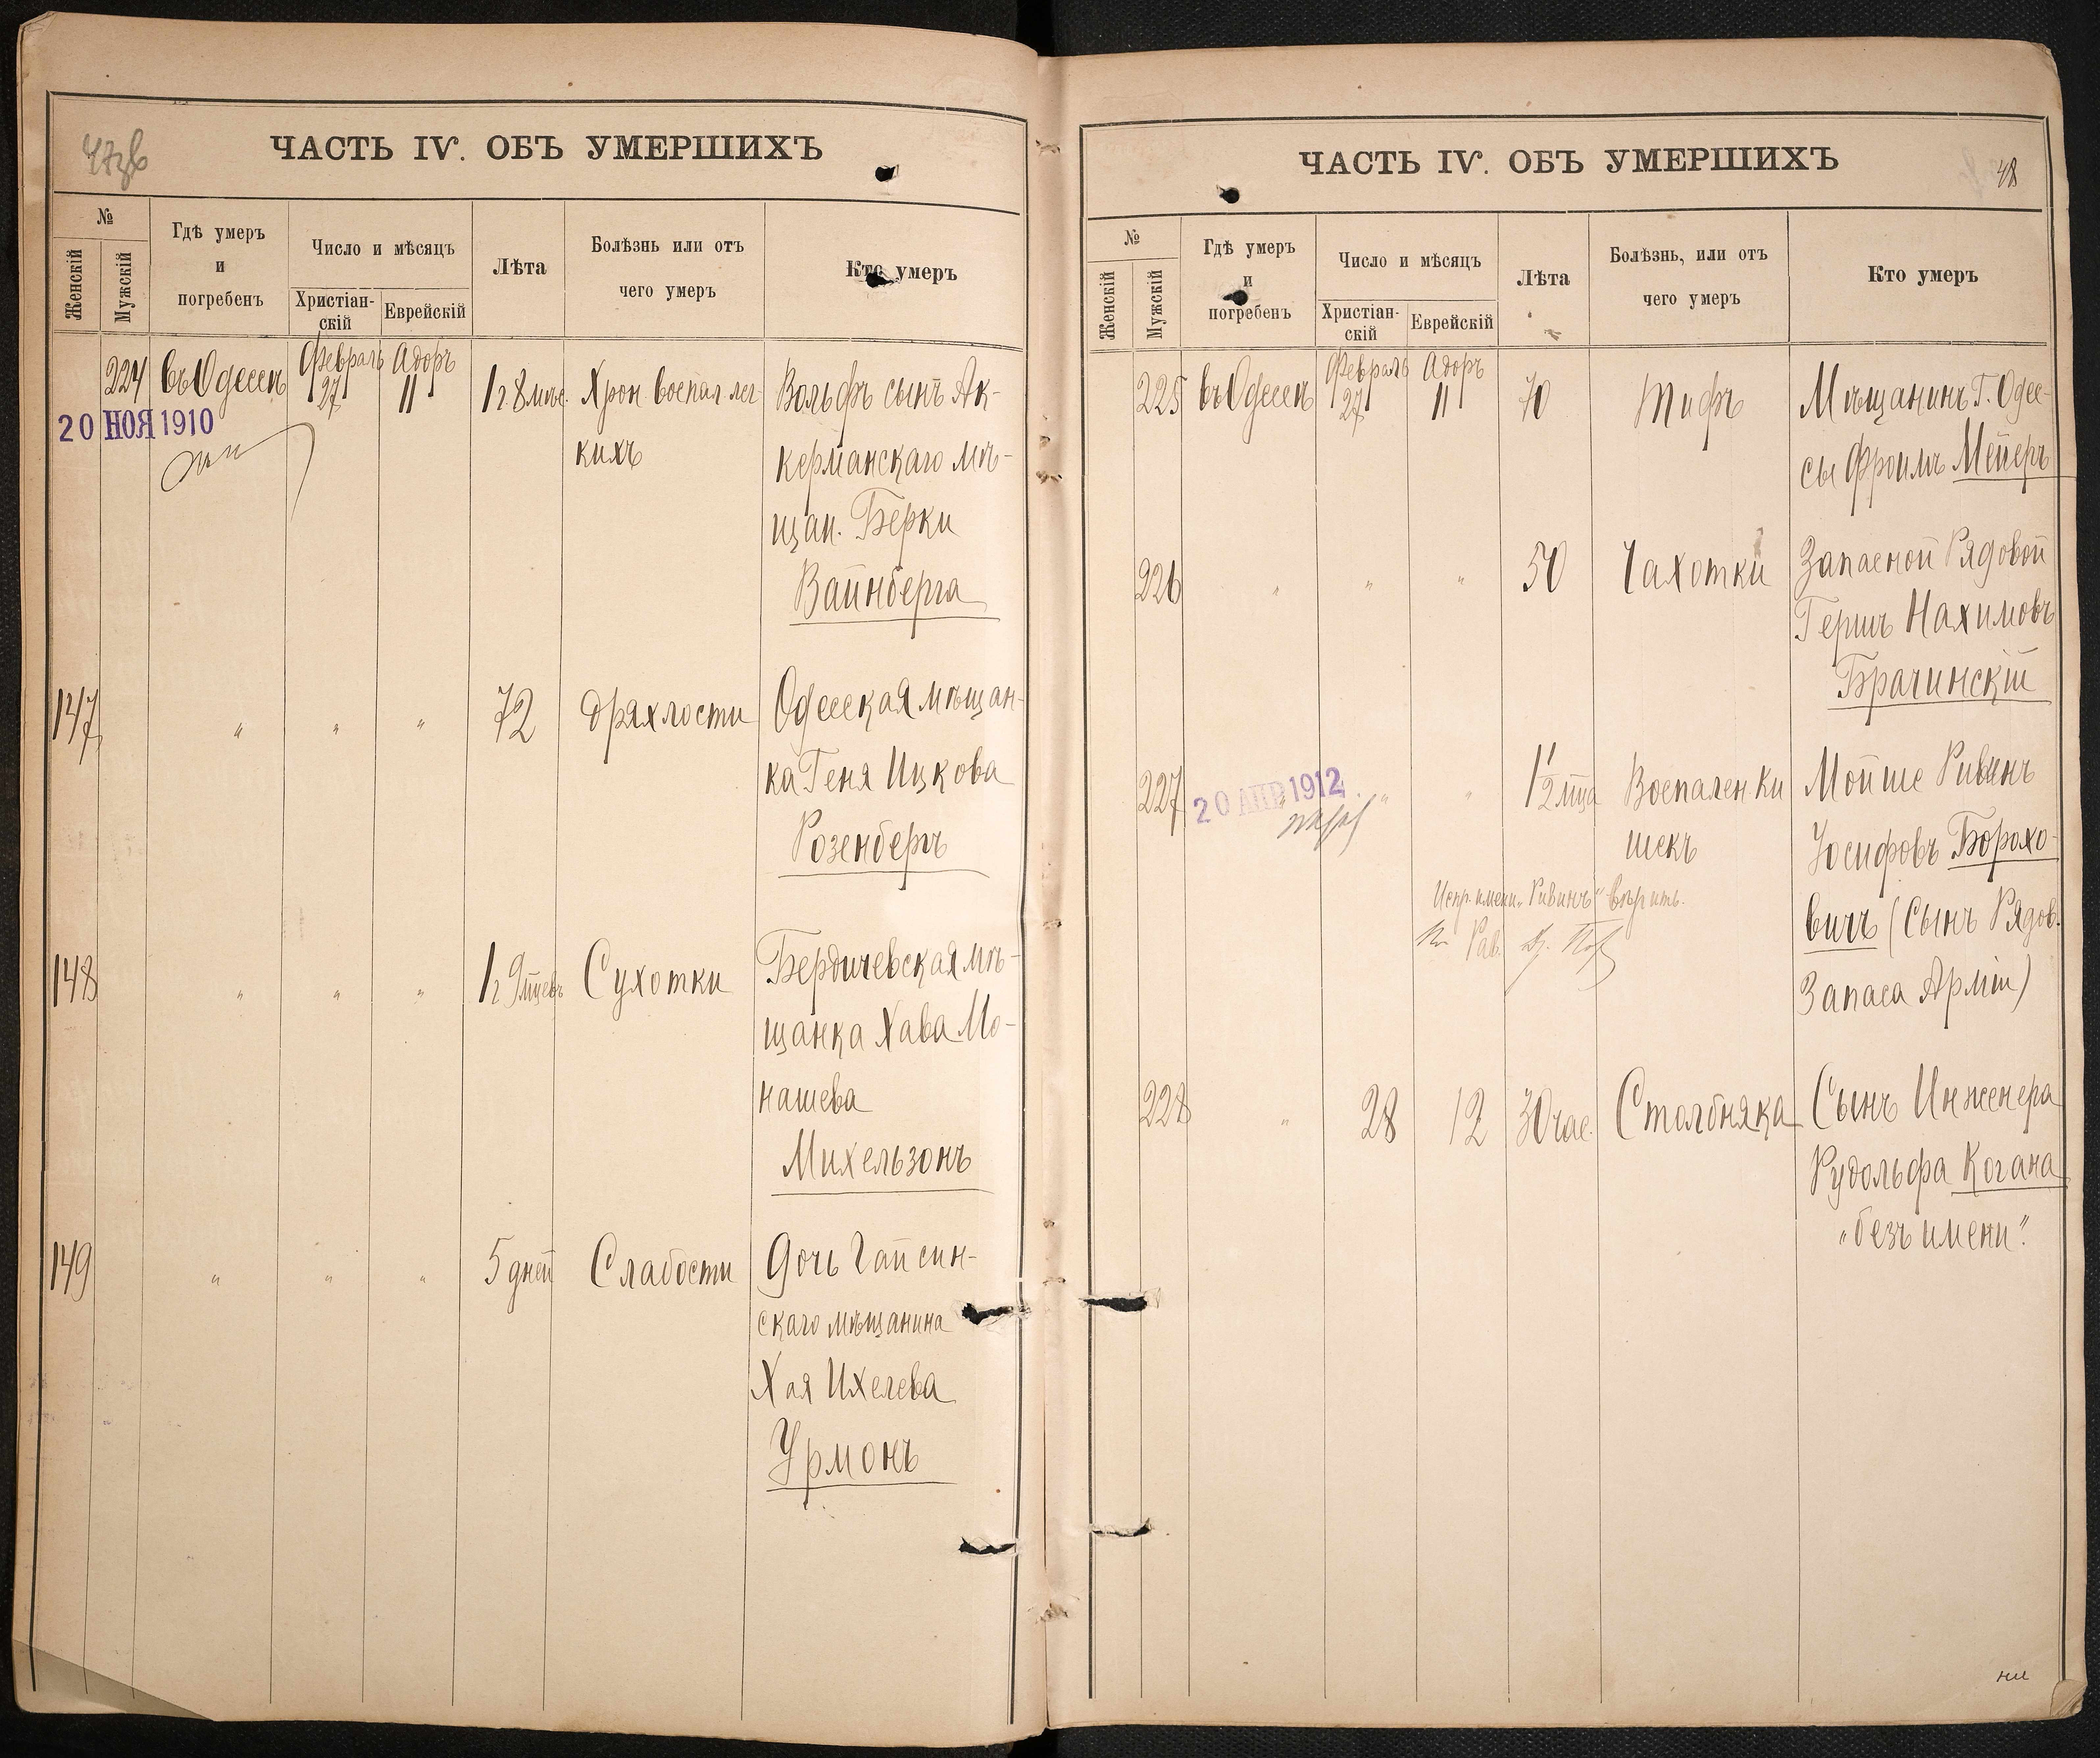 47об
ЧАСТЬ IV. ОБЪ УМЕРШИХЪ
№
Женскій
Мужскій
Гдѣ умеръ
и
погребенъ
Число и мѣсяцъ
Христіан-
скій
Еврейскій
Лѣта
Болѣзнь или отъ
чего умеръ
Кто умеръ
224 въ Одессѣ Февраль 27 Адоръ 11 1г. 8 мѣс. Хрон. воспал. лег- Вольфъ сынъ Ак-
20 НОЯ 1910
кихъ керманскаго мѣ-
щан. Берки
Вайнберга
147 " " " 72 Дряхлости Одесская мѣщан-
ка Геня Ицкова
Розенбергъ
148 " " " 1г 9 мцевъ Сухотки Бердичевская мѣ-
щанка Хава Мо-
нашева
Михельзонъ
149 " " " 5 дней Слабости Дочь Гайсин-
скаго мѣщанина
Хая Ихелева
Урмонъ
48
ЧАСТЬ IV. ОБЪ УМЕРШИХЪ
№
Женскій
Мужскій
Гдѣ умеръ
и
погребенъ
Число и мѣсяцъ
Христіан-
скій
Еврейскій
Лѣта
Болѣзнь, или отъ
чего умеръ
Кто умеръ
225 въ Одессѣ Февраль 27 Адоръ 11 70 Тифъ Мѣщанинъ Г. Одес-
сы Фроимъ Мейеръ
226 " " " 50 Чахотки Запасной Рядовой
Гершъ Нахимовъ
Брачинскій
227 " " " 1 1/2 мца Воспален ки Мойше Ривинъ
20 АПР 1912
шекъ Іосифовъ Борохо-
Испр. имени "Ривинъ" вѣрить.
вичъ (Сынъ Рядов.
Рав.
Запаса Арміи)
228 " 28 12 30 час. Столбняка Сынъ Инженера
Рудольфа Когана
"безъ имени".